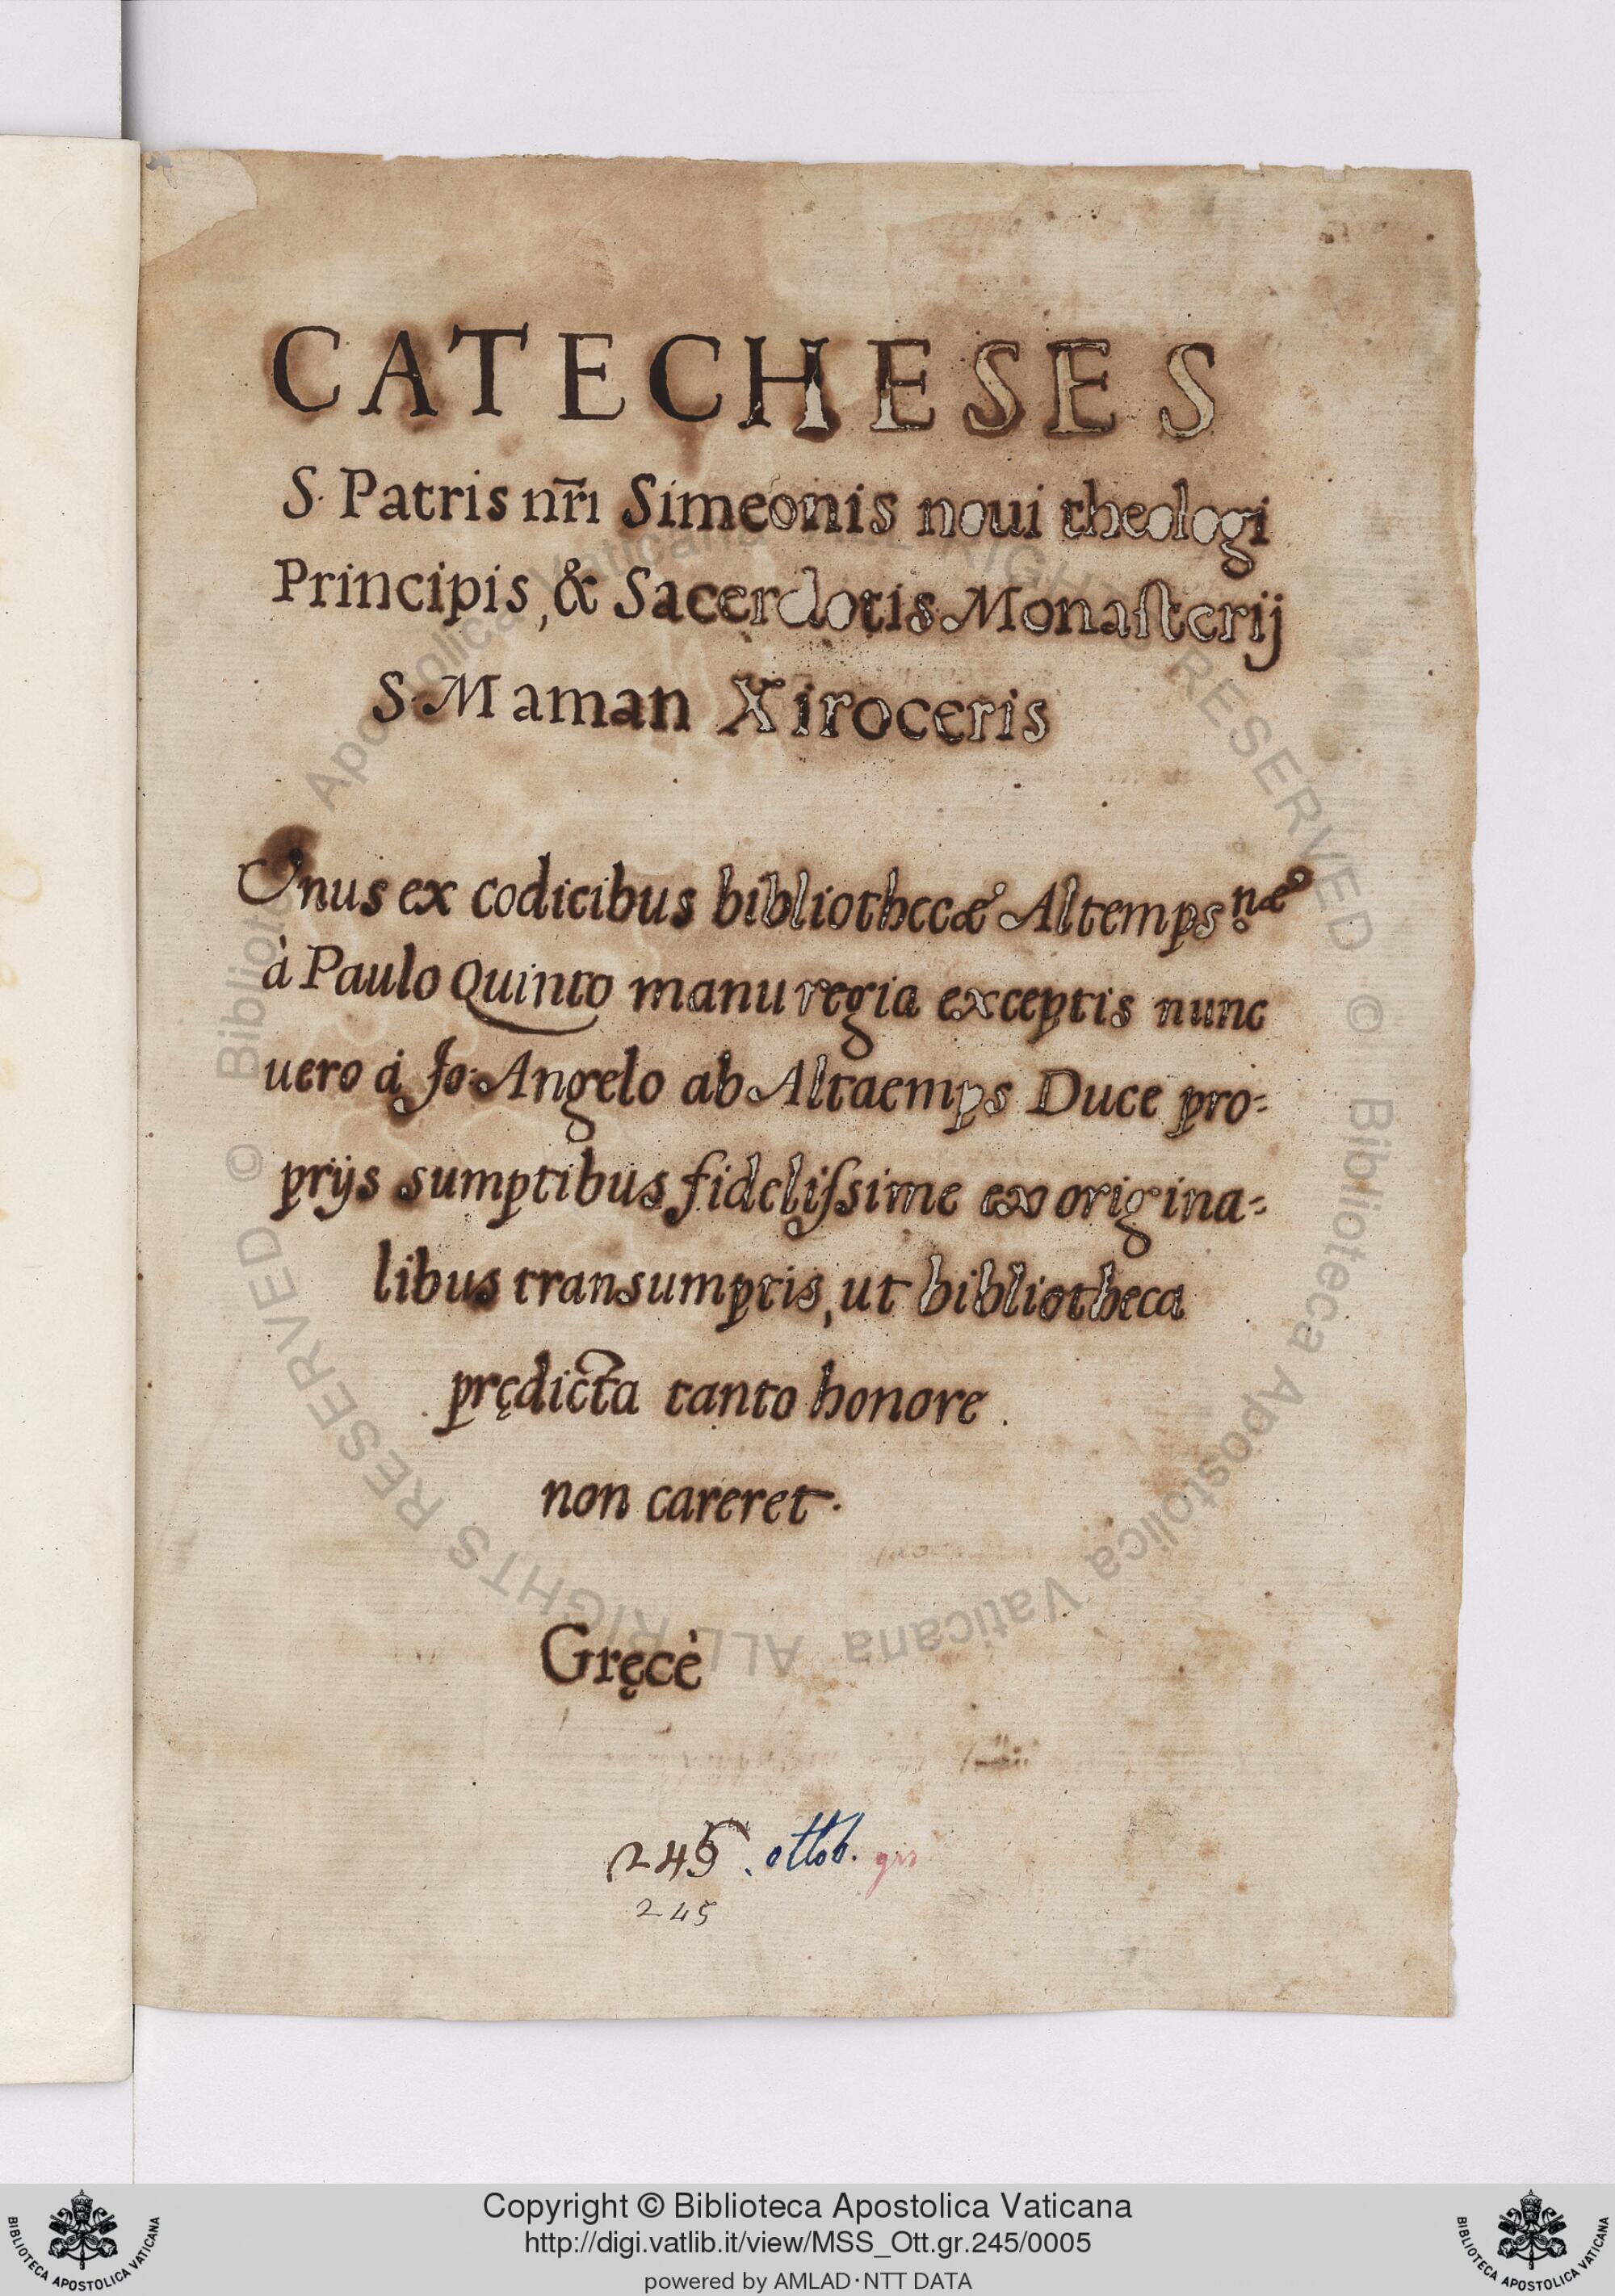 CATECHESES
S. Patris nr̃i Simeonis noui theologi
Principis, & Sacerdotis Monasterij
S. Maman Xiroceris
Unus ex codicibus bibliothecæ Altempsnæ
à Paulo Quinto manu regia exceptis nunc
uero à Jo. Angelo ab Altaemps Duce pro=
prijs sumptibus fidelissime ex origina=
libus transumptis, ut bibliotheca
prędicta tanto honore
non careret.
Gręcè
245. ottob. gr
245
© Biblioteca Apostolica Vaticana ALL RIGHTS RESERVED © Biblioteca Apostolica Vaticana ALL RIGHTS RESERVED
BIBLIOTECA APOSTOLICA VATICANA
Copyright © Biblioteca Apostolica Vaticana
http://digi.vatlib.it/view/MSS_Ott.gr.245/0005
powered by AMLAD·NTT DATA
BIBLIOTECA APOSTOLICA VATICANA